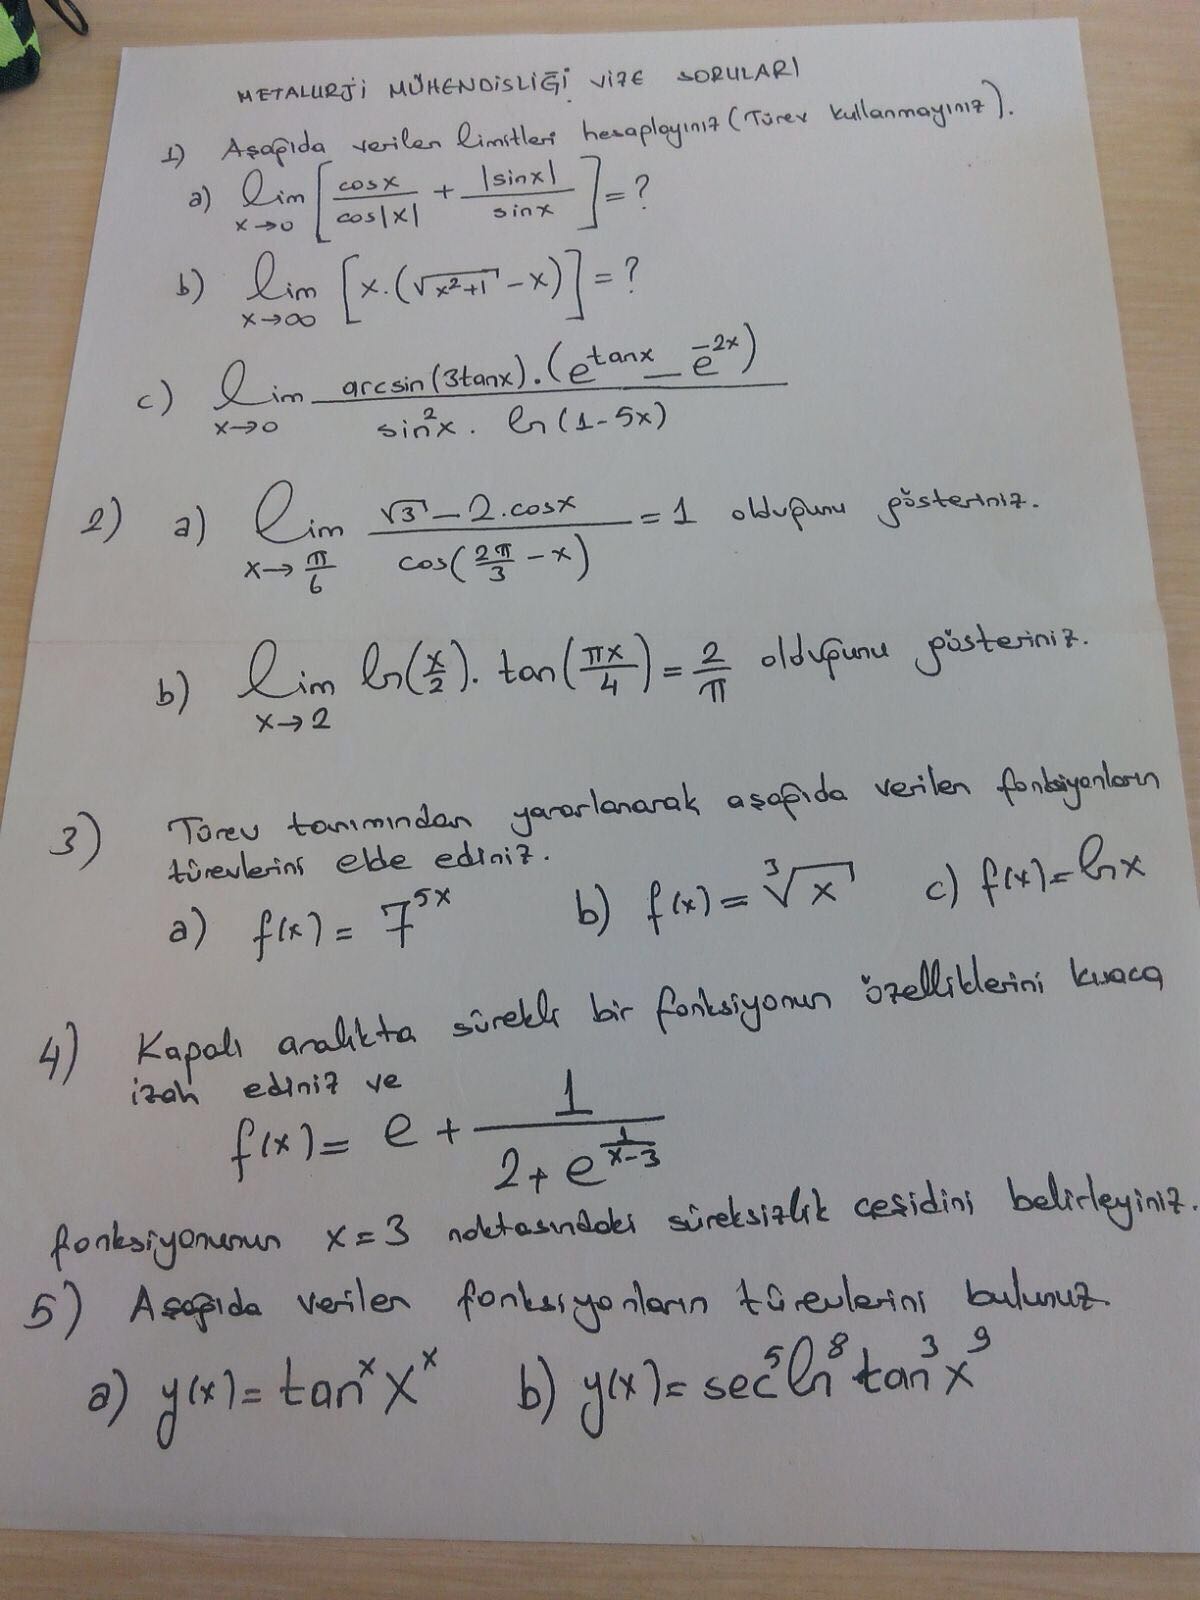 METALURJİ MÜHENDİSLİĞİ VİZE SORULARI
1) Aşağıda verilen limitleri hesaplayınız (Türev kullanmayınız).
a) lim x→0 [cosx/cos|x| + |sinx|/sinx] = ?
b) lim x→∞ [x.(√(x²+1) - x)] = ?
c) lim x→0 arcsin(3tanx).(e^tanx - e^-2x) / sin²x. ln(1-5x)
2) a) lim x→π/6 (√3 - 2.cosx)/cos(2π/3 - x) = 1 olduğunu gösteriniz.
b) lim x→2 ln(x/2). tan(πx/4) = 2/π olduğunu gösteriniz.
3) Türev tanımından yararlanarak aşağıda verilen fonksiyonların
türevlerini elde ediniz.
a) f(x) = 7^5x b) f(x) = ³√x c) f(x) = lnx
4) Kapalı aralıkta sürekli bir fonksiyonun özelliklerini kısaca
izah ediniz ve
f(x) = e + 1/(2 + e^(1/(x-3)))
fonksiyonunun x = 3 noktasındaki süreksizlik çeşidini belirleyiniz.
5) Aşağıda verilen fonksiyonların türevlerini bulunuz
a) y(x) = tan^x x^x b) y(x) = sec⁵ln⁸tan³x⁹